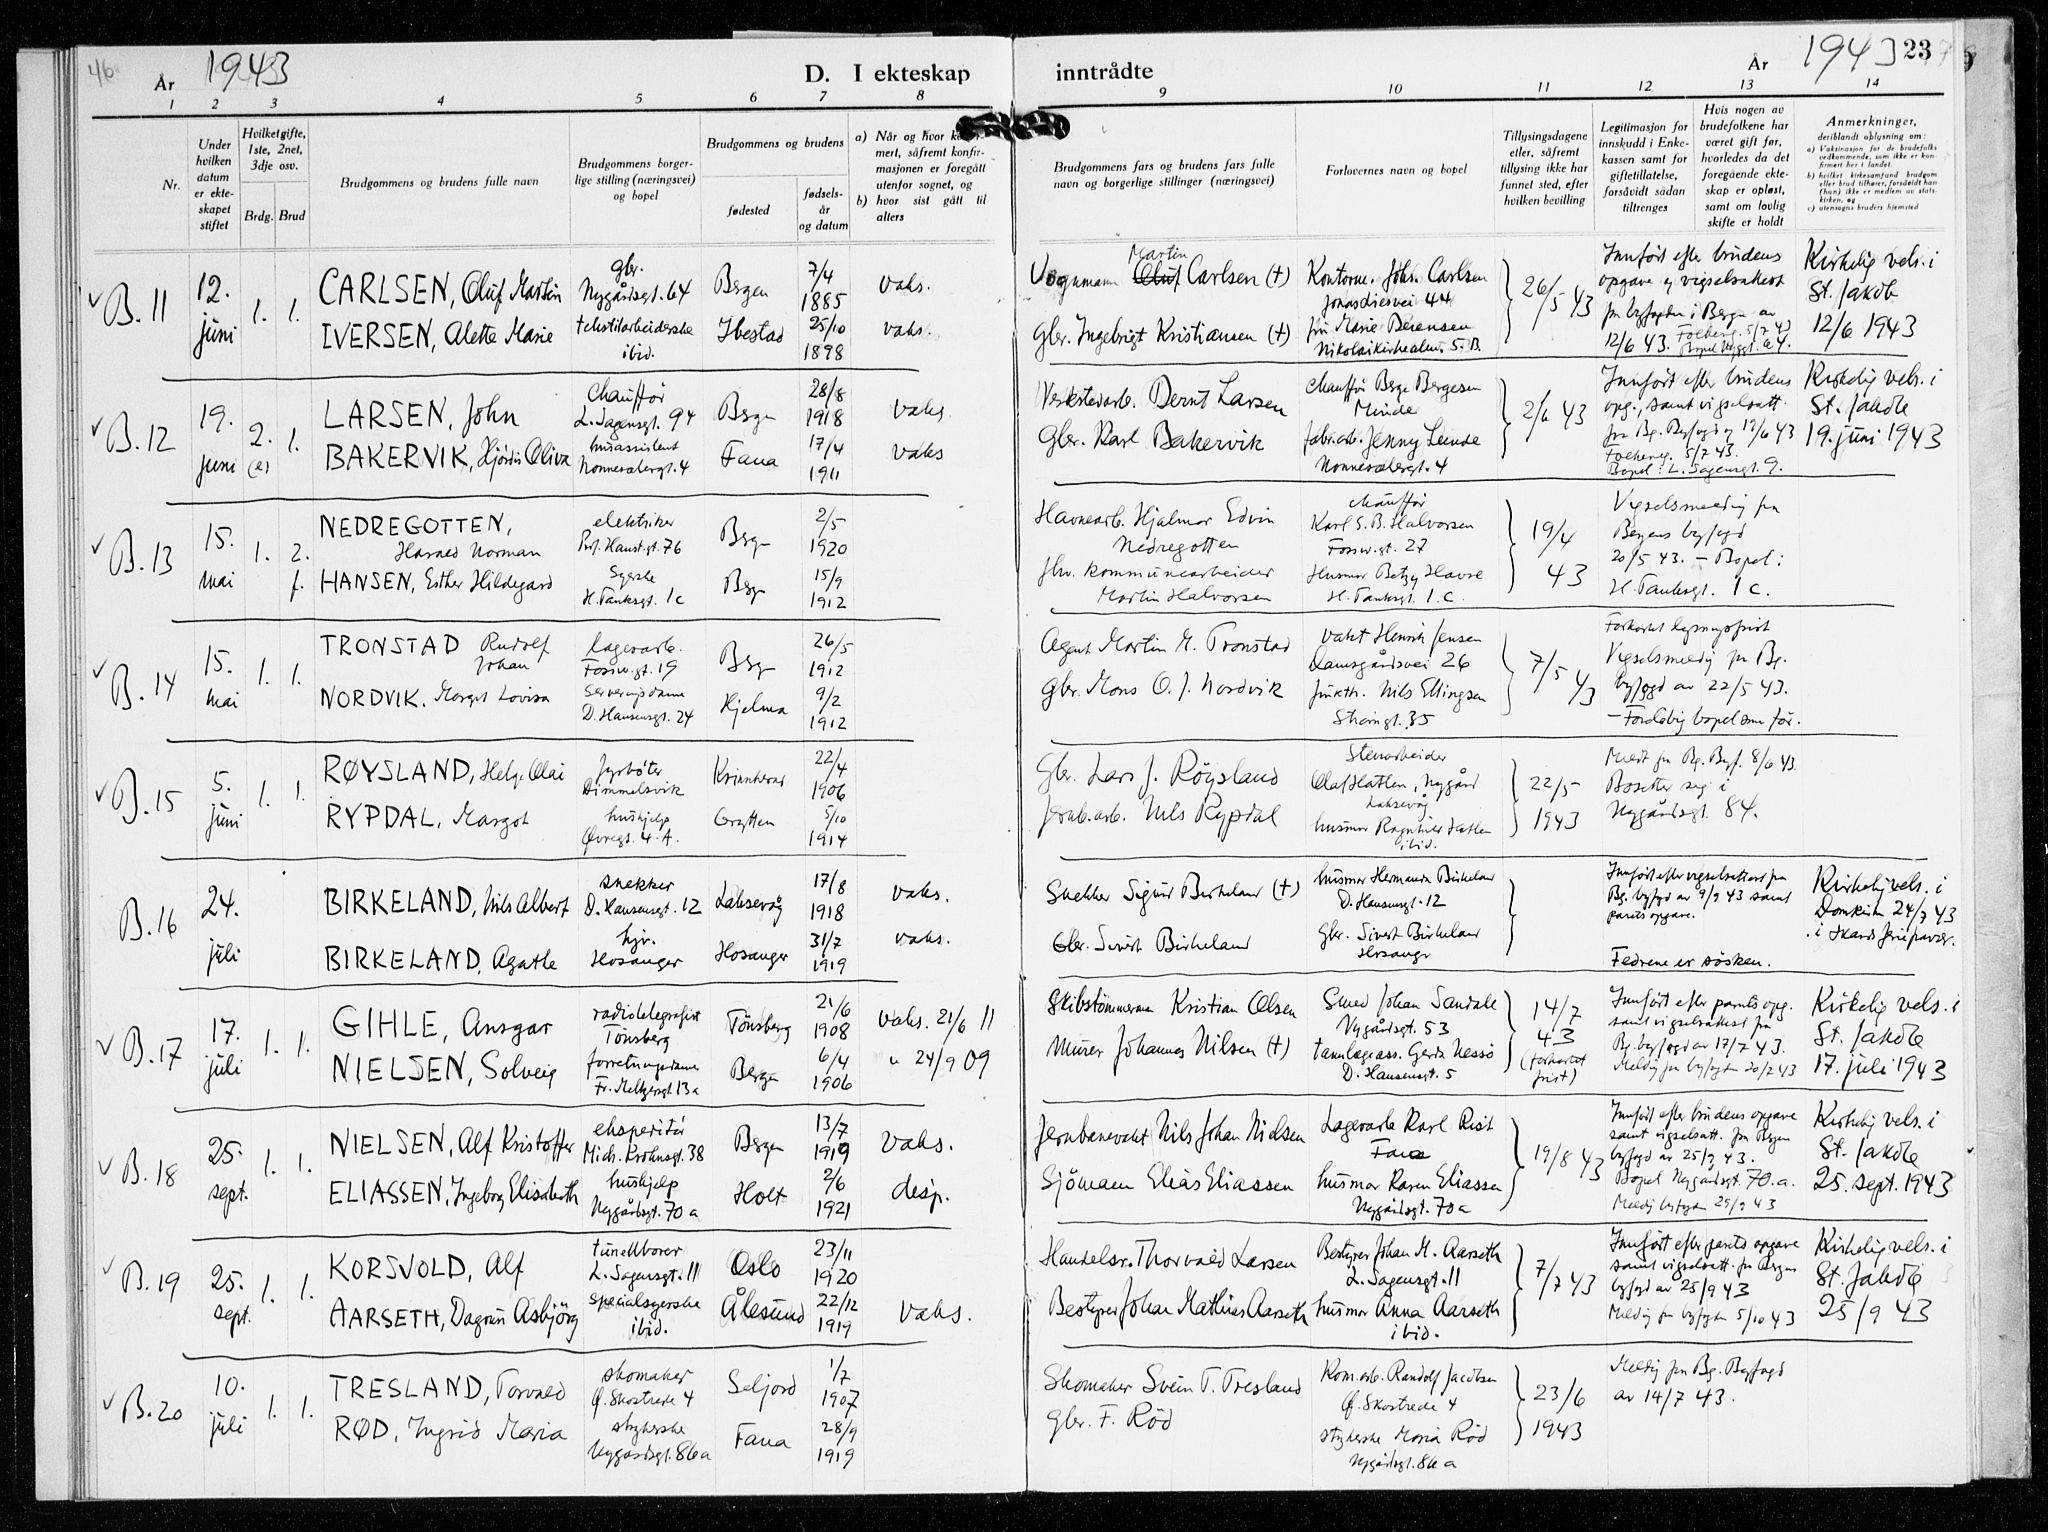 46
År 1943
D. I ekteskap
1 2 3 4 5 6 7 8
Nr.
Under hvilken datum er ekteskapet stiftet
Hvilket gifte, 1ste, 2net, 3dje osv.
Brdg. Brud
Brudgommens og brudens fulle navn
Brudgommens borgerlige stilling (næringsvei) og bopel
Brudgommens og brudens
fødested
fødselsår og datum
B. 11
12. juni
1. 1.
CARLSEN, Oluf Martin
gbr. Nygårdsgt. 64
Bergen
7/4 1885
vaks.
IVERSEN, Alette Marie
tekstilarbeiderske ibid.
Ibestad
25/10 1898
vaks.
B. 12
19. juni
2. (e) 1.
LARSEN, John
Chauffør L. Sagensgt. 94
Bergn
28/8 1918
vaks.
BAKERVIK, Hjördis Oliva
husassistent Nonnesetergt. 4
Fana
17/4 1911
vaks
B. 13
15. mai
1. 2. f.
NEDREGOTTEN, Harald Norman
elektriker Prof. Hanst.gt. 76
Bergn
2/5 1920
HANSEN, Esther Hildegard
Syerske H. Tanksgt. 1c
Bergn
15/9 1912
B. 14
15. mai
1. 1.
TRONSTAD Rudolf Johan
lagerarb. Fossw.gt. 19
Bergn
26/5 1912
NORDVIK. Margit Lovisa
Serveringsdame D. Hansensgt. 24
Hjelma
9/2 1912
B. 15
5. juni
1. 1.
RØYSLAND, Helge Olai
fyrbøter Dimmelsvik
Kvinnherad
22/4 1906
RYPDAL, Margot
hushjelp Øvregt. 4. A.
Grytten
5/10 1914
B. 16
24. juli
BIRKELAND, Nils Albert
snekker D. Hansensgt. 12
Laksevåg
17/8 1918
vaks.
BIRKELAND, Agathe
hjv. Hosanger
Hosanger
31/7 1919
vaks.
B. 17
17. juli
1. 1.
GIHLE, Ansgar
radiotelegrafist Tönsberg
Tönsberg
21/6 1908
vaks. 21/6 11
NIELSEN, Solveig
forretningsdame Fr. Meltzersgt. 13a
Bergen
6/4 1906
" 24/9 09
B. 18
25. sept.
1. 1.
NIELSEN, Alf Kristoffer
ekspeditör Mich. Krohnsgt. 38
Bergen
13/7 1919
vaks.
ELIASSEN, Ingeborg Elisabeth
hushjelp Nygårdsgt. 70 a
Holt
2/6 1921
desp.
B. 19
25. sept.
1. 1.
KORSVOLD, Alf
tunellborer L. Sagensgt. 11
Oslo
23/11 1920
AARSETH, Dagrun Asbjörg
specialsyerske ibid.
Ålesund
22/12 1919
vaks.
B. 20
10. juli
1. 1.
TRESLAND, Torvald
skomaker Ø. Skostrede 4
Seljord
1/7 1907
RØD, Ingrid Maria
strykerske Nygårdsgt. 86a
Fana
28/9 1919
inntrådte
År 1943 23
9 10 11 12 13 14
Brudgommens fars og brudens fars fulle navn og borgerlige stillinger (næringsvei)
Forlovernes navn og bopel
Tillysingsdagene eller, såfremt tillysing ikke har funnet sted, efter hvilken bevilling
Legitimasjon for innskudd i Enkekassen samt for giftetillatelse, forsåvidt sådan tiltrenges
Hvis nogen av brudefolkene har været gift før, hvorledes da det foregående ekteskap er opløst, samt om lovlig skifte er holdt
Anmerkninger, deriblandt oplysning om:
Vognmann Martin Carlsen (+)
Kontorm. John Carlsen Jonas Liesvei 44
26/5 43
Innført efter brudens opgave og vigselsattest fra byfogden i Bergen av 12/6 43.
Kirkelig vels. i St. Jakob 12/6 1943
Gbr. Ingebrigt Kristiansen (+)
fru Marie Berensen Nikolaikirkealm. 5. B.
Verkstedarb. Bernt Larsen
Chauffør Berge Bergesen Minde
2/6 43
Innført efter brudens opg., samt vigselsatt. fra Bg. Byfogd 19/6 43 5/7 43. Bopel: L. Sagensgt. 9.
Kirkelig vels. i St. Jakob 19. juni 1943
Gbr. Karl Bakervik
fabr.arb. Jenny Lunde Nonnesetergt. 4
Havnearb. Hjalmar Edvin Nedregotten
chauffør Karl S. B. Halvorsen Fossw.gt. 27
19/4 43
Vigselsmelding fra Bergens byfogd 20/5 43. – Bopel: H. Tanksgt. 1 c.
fhv. kommunearbeider Martin Halvorsen
Husmor Betzy Hovse H. Tanksgt. 1. c.
Agent Martin M. Tronstad
vakt Henrik Jensen Damsgårdsvei 26
7/5 43
Forkortet lysningsfrist Vigselsmelding fra Bg. byfogd av 22/5 43. – Foreløbig bopel som før.
Gbr. Mons O. J. Nordvik
Nils Ellingsen Strømgt. 35
Gbr. Lars J. Röysland
Stenarbeider Olaf Hatlen, Nygård Laksevåg
22/5 1943
Meldt fra Bg. Byf. 8/6 43. Bosetter seg i Nygårdsgt. 84.
Jernb.arb. Nils Rypdal
husmor Ragnhild Hatlen ibid.
Snekker Sigurd Birkeland (+)
husmor Hermanda Birkeland D. Hansensgt. 12
Innført efter vigselsattest fra Bg. byfogd av 9/9 43 samt parets opgave.
Fedrene er søsken.
Kirkelig vels. i Domkirken 24/7 43
Gbr. Sivert Birkeland
Gbr. Sivert Birkeland Hosangr
Skibstömmerm Kristian Olsen
Smed Johan Sandale Nygårdsgt. 53
14/7 43 (forkortet frist)
Innført efter parets opg. samt vigselsattest fra Bg. byfogd av 17/7 43. Melding fra byfogden 20/7 43
Kirkelig vels. i St. Jakob 17. juli 1943
Murer Johannes Nilsen (+)
tannlegeass. Gerda Nessö D. Hansensgt. 5
Jernbanevakt Nils Johan Nielsen
Lagerarb Karl Rist Fana
19/8 43
Innført efter brudens opgave samt vigselsatt. fra Bergen byfogd av 25/9 43. Bopel Nygårdsgt. 70. a. Melding byfogden 29/9 43
Kirkelig vels. i St. Jakob 25. sept. 1943
Sjömann Elias Eliassen
husmor Karen Eliassen Nygårdsgt. 70a
Handelsr. Thorvald Larsen
Bestyrer Johan M. Aarseth L. Sagensgt. 11
7/7 43
Innført efter parets opgave samt vigselsatt. fra Bergens byfogd av 25/9 43 Melding fra byfogden 5/10 43
Kirkelig vels. i St. Jakob 25/9 43
Bestyrer Johan Mathias Aarseth
husmor Anna Aarseth ibid.
Skomaker Svein T. Tresland
Kom.arb. Randolf Jacobsen Ø. Skostrede 4
23/6 1943
Melding fra Bg. Byfogd av 14/7 43.
Gbr. F. Röd
strykerske Maria Röd Nygårdsgt. 86 a